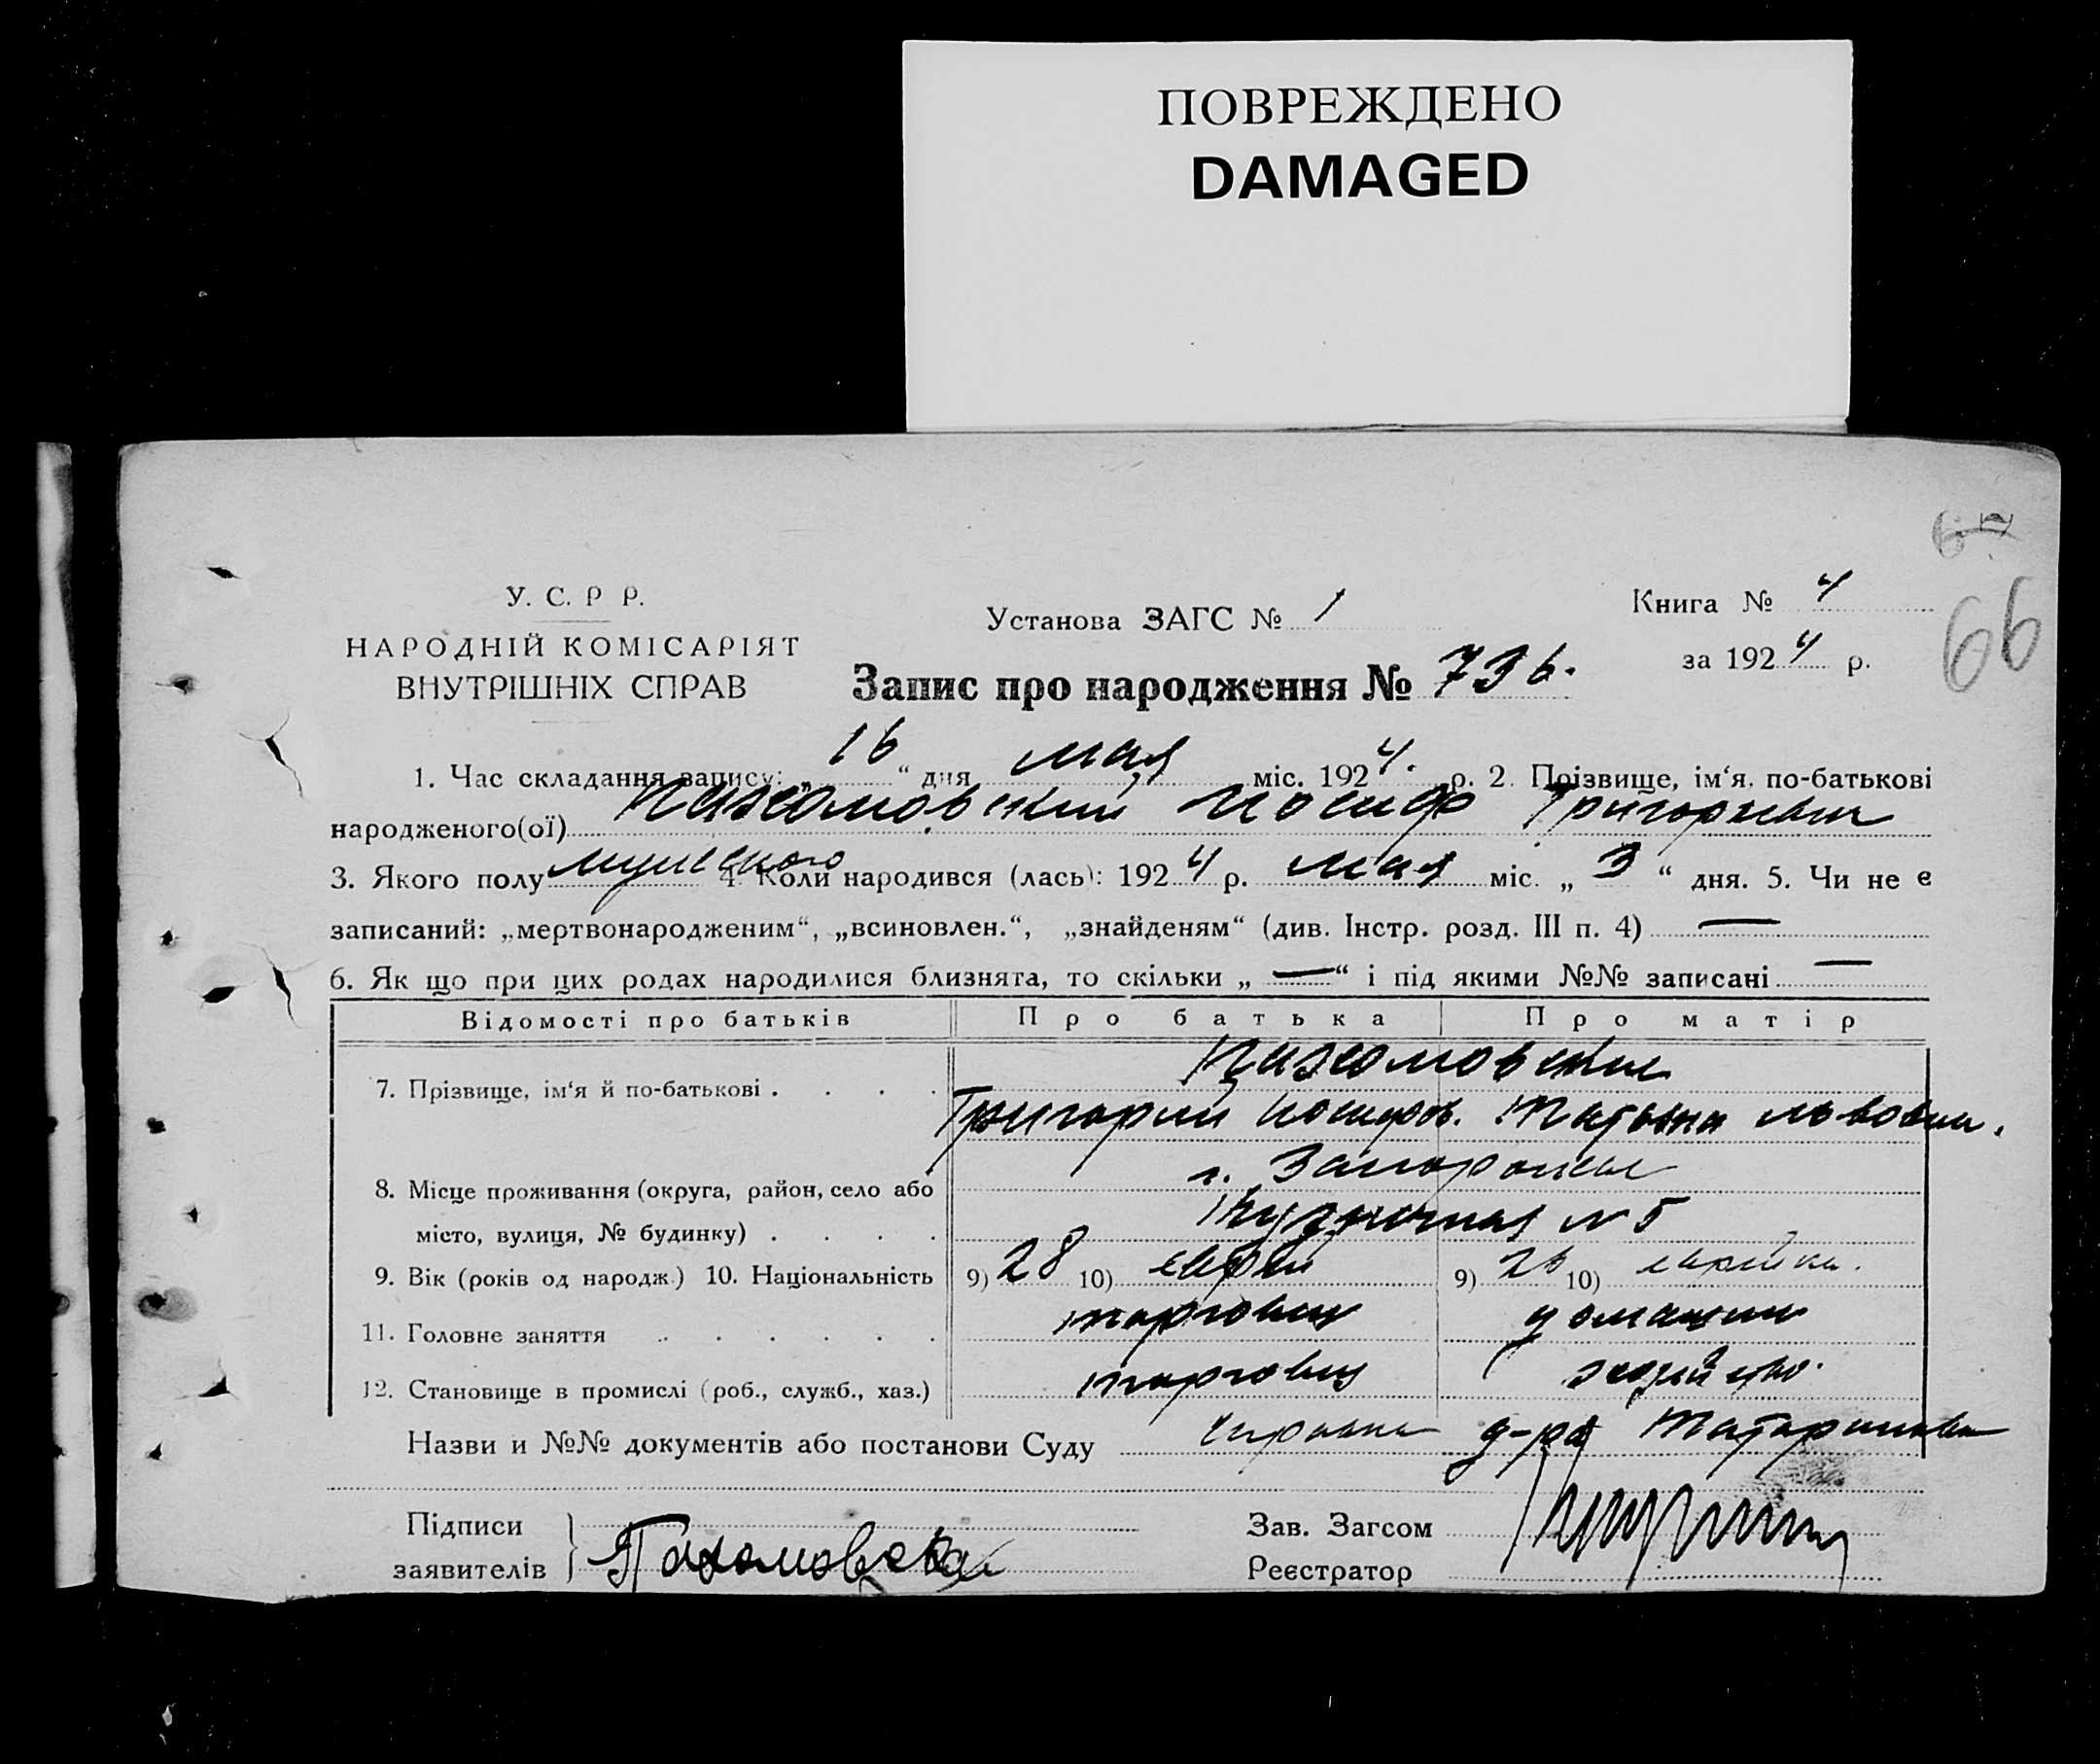 ПОВРЕЖДЕНО
DAMAGED
67
66
У. С. Р Р.
НАРОДНІЙ КОМІСАРІЯТ
ВНУТРІШНІХ СПРАВ
Установа ЗАГС № 1
Книга № 4
за 1924 р.
Запис про народження № 736.
1. Час складання запису: „16“ дня мая міс. 1924. р. 2. Прізвище, ім‘я, по-батькові
народженого(ої) Пахомовский Иосиф Григориевич
3. Якого полу мужского 4. Коли народився (лась): 1924 р. мая міс. „3“ дня. 5. Чи не є
записаний: „мертвонародженим“, „всиновлен.“, „знайденям“ (див. Інстр. розд. III п. 4) —
6. Як що при цих родах народилися близнята, то скільки „—“ і під якими №№ записані —
Відомості про батьків Про батька Про матір
7. Прізвище, ім‘я й по-батькові . . . . Пахомовские
Григорий Иосифов. Татьяна Львовна.
8. Місце проживання (округа, район, село або г. Запорожье
місто, вулиця, № будинку) . . . . Кузнечная № 5
9. Вік (років од народж.) 10. Національність 9) 28 10) еврей 9) 26 10) еврейка.
11. Головне заняття . . . . . . торговец домашн
12. Становище в промислі (роб., служб., хаз.) торговец хозяйство.
Назви и №№ документів або постанови Суду справка д-ра
Підписи
заявителів Пахомовская
Зав. Загсом
Реєстратор